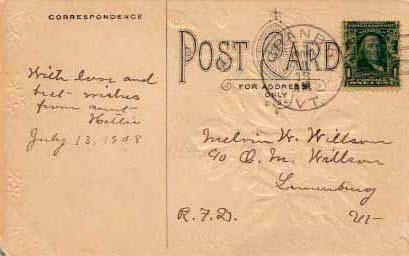 CORRESPONDENCE
POST CARD
FOR ADDRESS
ONLY
VT.
1
With love and
best wishes
from aunt
Hattie
July 13, 1908
Melvin W. Willson
c/o O. M. Willson
Lunenburg
R.F.D. Vt